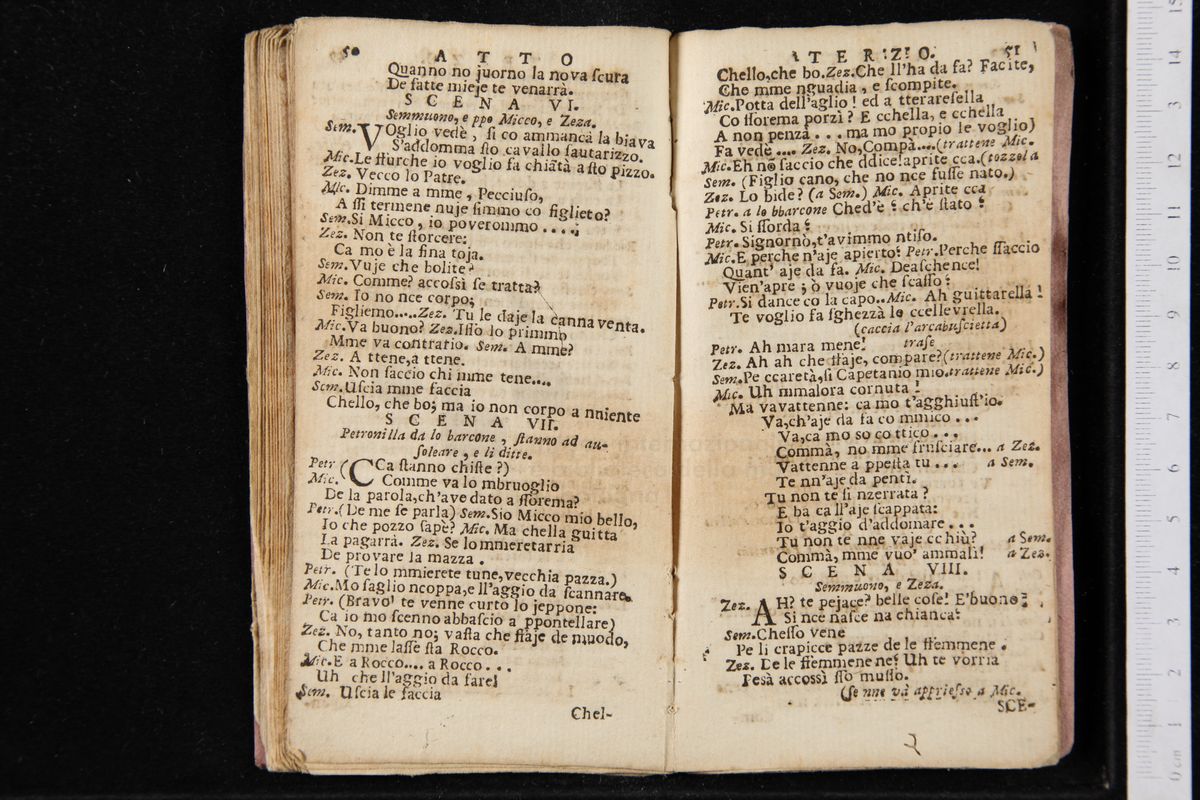 50
A T T O
Quanno no juorno la nova ſcura
De fatte mieje te venarrà.
S C E N A VI.
Semmuono, e ppo Micco, e Zeza.
Sem. VOglio vedè, ſi co ammanca la biava
S'addomma ſto cavallo ſautarizzo.
Mic. Le ſturche io voglio fa chiàtà a ſto pizzo.
Zez. Vecco lo Patre.
Mic. Dimme a mme, Pecciuſo,
A ſſi termene nuje ſimmo co figlieto?
Sem. Si Micco, io poverommo ....;
Zez. Non te ſtorcere:
Ca mo è la fina toja.
Sem. Vuje che bolite?
Mic. Comme? accoſsì ſe tratta?
Sem. Io no nce corpo;
Figliemo..... Zez. Tu le daje la canna venta.
Mic. Va buono? Zez. Iſſo lo primmo
Mme va contrario. Sem. A mme?
Zez. A ttene, a ttene.
Mic. Non ſaccio chi mme tene....
Sem. Uſcia mme faccia
Chello, che bo; ma io non corpo a nniente
S C E N A VII.
Petronilla da lo barcone, ſtanno ad au-
ſoleare, e li ditte.
Petr. (CCa ſtanno chiſte?)
Mic. Comme va lo mbruoglio
De la parola, ch'ave dato a ſſorema?
Petr. (De me ſe parla) Sem. Sio Micco mio bello,
Io che pozzo ſapè? Mic. Ma chella guitta
La pagarrà. Zez. Se lo mmeretarria
De provare la mazza.
Petr. (Te lo mmierete tune, vecchia pazza.)
Mic. Mo ſaglio ncoppa, e ll'aggio da ſcannare.
Petr. (Bravo! te venne curto lo jeppone:
Ca io mo ſcenno abbaſcio a ppontellare)
Zez. No, tanto no; vaſta che ſtaje de muodo,
Che mme laſſe ſta Rocco.
Mic. E a Rocco.... a Rocco...
Uh che ll'aggio da fare!
Sem. Uſcia le faccia
Chel-
TERZO.
51
Chello, che bo. Zez. Che ll'ha da fa? Facite,
Che mme nguadia, e ſcompite.
Mic. Potta dell'aglio! ed a tterareſella
Co ſſorema porzì? E cchella, e cchella
A non penzà... ma mo propio le voglio)
Fa vedè .... Zez. No, Compà....(trattene Mic.
Mic. Eh nò ſaccio che ddice! aprite cca. (tozzola
Sem. (Figlio cano, che no nce fuſſe nato.)
Zez. Lo bide? (a Sem.) Mic. Aprite cca
Petr. a lo bbarcone Ched'è? ch'è ſtato?
Mic. Si ſſorda?
Petr. Signornò, t'avimmo ntiſo.
Mic. E perche n'aje apierto? Petr. Perche ſſaccio
Quant' aje da fa. Mic. Deaſchence!
Vien'apre; ò vuoje che ſcaſſo?
Petr. Si dance co la capo.. Mic. Ah guittarella!
Te voglio fa ſghezzà le ccellevrella.
(caccia l'arcabuſcietta)
Petr. Ah mara mene! traſe
Zez. Ah ah che ſtaje, compare? (trattene Mic.)
Sem. Pe ccaretà, ſi Capetanio mio. trattene Mic.)
Mic. Uh mmalora cornuta!
Ma vavattenne: ca mo t'agghiuſt'io.
Va, ch'aje da fa co mmico...
Va, ca mo so co ttico...
Commà, no mme fruſciare... a Zez.
Vattenne a ppeſta tu... a Sem.
Te nn'aje da pentì.
Tu non te ſi nzerrata?
E ba ca ll'aje ſcappata:
Io t'aggio d'addomare...
Tu non te nne vaje cchiù? a Sem.
Commà, mme vuo' ammalì! a Zez.
S C E N A VIII.
Semmuono, e Zeza.
Zez. AH? te pejace? belle coſe! E' buono?
Si nce naſce na chianca?
Sem. Cheſſo vene
Pe li crapicce pazze de le ffemmene.
Zez. De le ffemmene ne? Uh te vorria
Peſà accossì ſſo muſſo.
(ſe nne và appriesſo a Mic.
SCE-